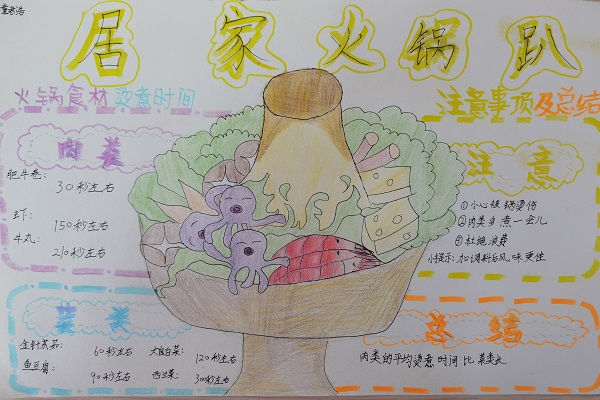 居家火锅趴
火锅食材 烫煮时间
注意事项及总结
肉类
肥牛卷：
30秒左右
虾：
150秒左右
牛丸：
210秒左右
注意
①小心被锅烫伤
②肉类多煮一会儿
③杜绝浪费
小提示：加调料后风味更佳
菜类
金针菇：
60秒左右
大白菜：
120秒左右
鱼豆腐：
90秒左右
西兰菜：
30秒左右
总结
肉类的平均烫煮时间比菜类长